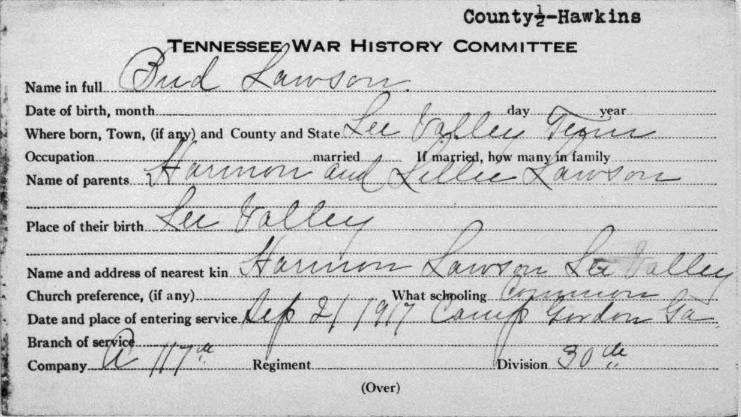 County½-Hawkins
TENNESSEE WAR HISTORY COMMITTEE
Name in full Bud Lawson.
Date of birth, month day year
Where born, Town, (if any) and County and State Lee Valley Tenn
Occupation married If married, how many in family
Name of parents Harmon and Lillie Lawson
Place of their birth Lee Valley
Name and address of nearest kin Harmon Lawson Lee Valley
Church preference, (if any) What schooling Common
Date and place of entering service Sep 21 1917 Camp Gordon Ga.
Branch of service
Company A 117th Regiment Division 30th
(Over)